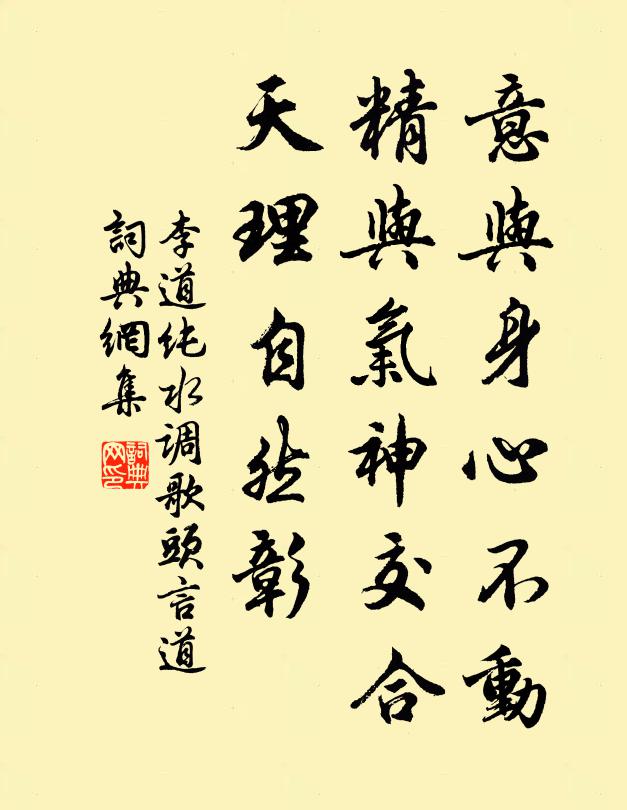 意與身心不動
精與氣神交合
天理自然彰
李道純水调歌頭言道
詞典網集
詞典
网印